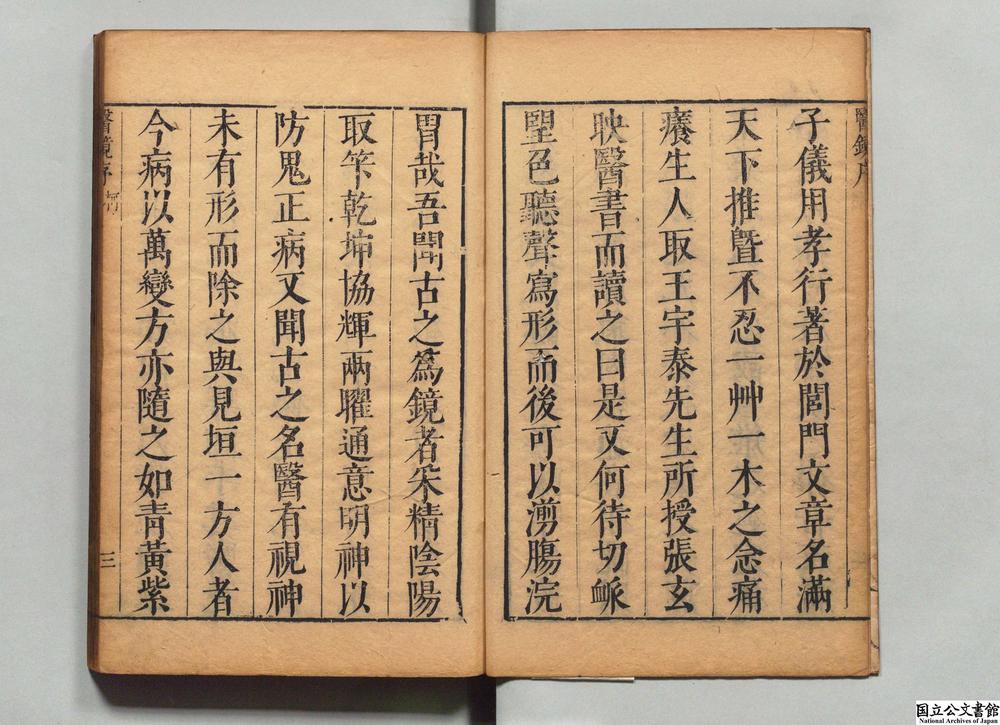 醫鏡序
子儀用孝行著於閭門文章名滿
天下推曁不忍一艸一木之念痛
癢生人取王宇泰先生所授張玄
映醫書而讀之曰是又何待切衇
朢色聽聲寫形而後可以湔腸浣
胃哉吾聞古之爲鏡者采精陰陽
取笇乾坤協輝兩曜通意明神以
防鬼正病又聞古之名醫有視神
未有形而除之與見垣一方人者
今病以萬變方亦隨之如靑黃紫
醫鏡序
三
国立公文書館
National Archives of Japan